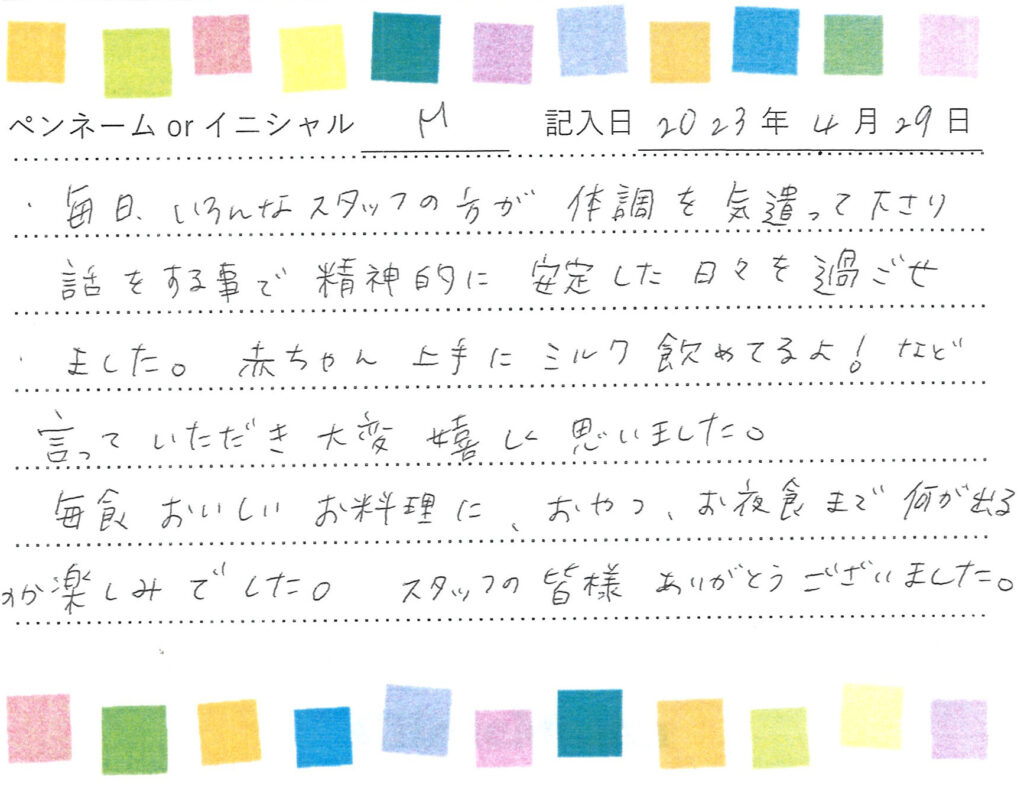 ペンネーム or イニシャル M 記入日 2023年 4月 29日
・毎日、いろんなスタッフの方が 体調を気遣って下さり
話をする事で 精神的に 安定した日々を過ごせ
・ました。赤ちゃん 上手に ミルク 飲めてるよ! など
言って いただき 大変 嬉しく 思いました。
毎食 おいしい お料理に、おやつ、お夜食まで 何が出る
か楽しみでした。 スタッフの 皆様 ありがとうございました。